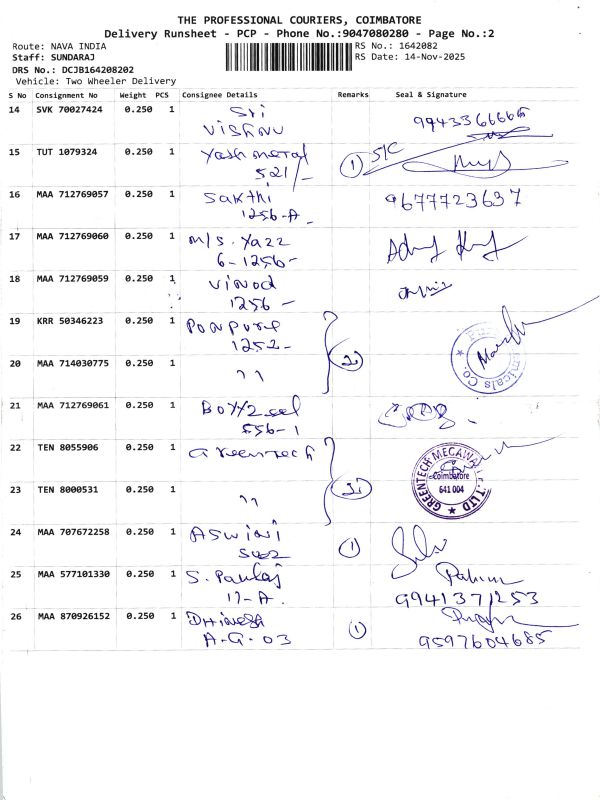 THE PROFESSIONAL COURIERS, COIMBATORE
Delivery Runsheet - PCP - Phone No.:9047080280 - Page No.:2
Route: NAVA INDIA
RS No.: 1642082
Staff: SUNDARAJ
RS Date: 14-Nov-2025
DRS No.: DCJB164208202
Vehicle: Two Wheeler Delivery
S No Consignment No Weight PCS Consignee Details Remarks Seal & Signature
14 SVK 70027424 0.250 1 Sri
Vishnu
9943366666
15 TUT 1079324 0.250 1 Yash
521/-
1 S/C
16 MAA 712769057 0.250 1 Sakthi 9677723637
1256-A
17 MAA 712769060 0.250 1 M/S. Yazz
6-1256-
18 MAA 712769059 0.250 1 Vinod
1256 -
19 KRR 50346223 0.250 1 Ponpure
1252-
2
20 MAA 714030775 0.250 1 11
21 MAA 712769061 0.250 1
556-1
22 TEN 8055906 0.250 1 Greentech
GREENTECH MEGAWA
Coimbatore
641 004
T LTD
2
23 TEN 8000531 0.250 1 11
24 MAA 707672258 0.250 1 Aswini
1
25 MAA 577101330 0.250 1 S. Pankaj
17-A.
9941371253
26 MAA 870926152 0.250 1 Dhinesh
A-G-03
1
9597604685